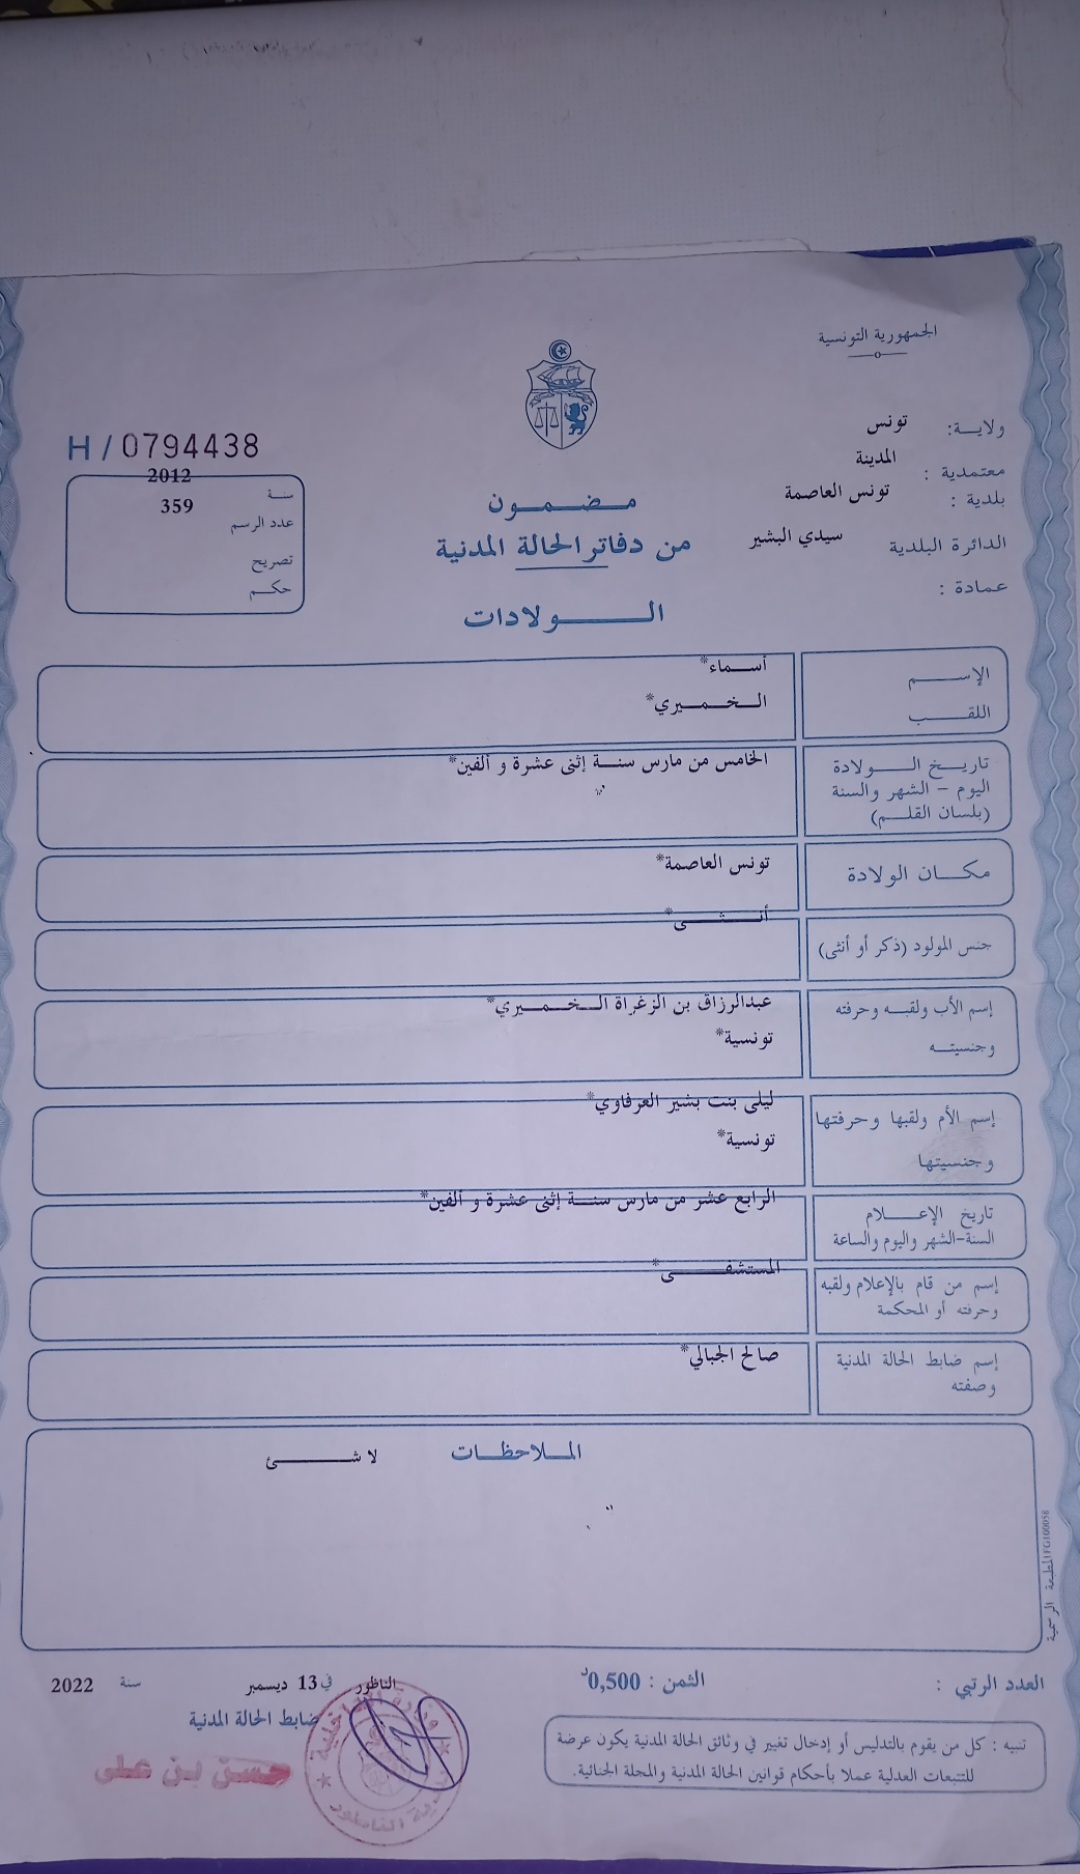 الجمهورية التونسية
ولاية: تونس
معتمدية : المدينة
بلدية : تونس العاصمة
الدائرة البلدية سيدي البشير
عمادة :
H / 0794438
سنة 2012
عدد الرسم 359
تصريح
حكم
مضمون
من دفاتر الحالة المدنية
الولادات
الإسم أسماء*
اللقب الخميري*
تاريخ الولادة الخامس من مارس سنة إثنى عشرة و ألفين*
اليوم - الشهر والسنة
(بلسان القلم)
مكان الولادة تونس العاصمة*
جنس المولود (ذكر أو أنثى) أنثى*
إسم الأب ولقبه وحرفته عبدالرزاق بن الزغراة الخميري*
وجنسيته تونسية*
إسم الأم ولقبها وحرفتها ليلى بنت بشير العرفاوي*
وجنسيتها تونسية*
تاريخ الإعلام الرابع عشر من مارس سنة إثنى عشرة و ألفين*
السنة-الشهر واليوم والساعة
إسم من قام بالإعلام ولقبه المستشفى*
وحرفته أو المحكمة
إسم ضابط الحالة المدنية صالح الجبالي*
وصفته
الملاحظات لا شئ
المطبعة الرسمية FG100058
العدد الرتبي : الثمن : 0,500د
الناظور في 13 ديسمبر سنة 2022
ضابط الحالة المدنية
حسن بن علي
وزارة الداخلية
بلدية الناظور
تنبيه : كل من يقوم بالتدليس أو إدخال تغيير في وثائق الحالة المدنية يكون عرضة
للتتبعات العدلية عملا بأحكام قوانين الحالة المدنية والمجلة الجنائية.